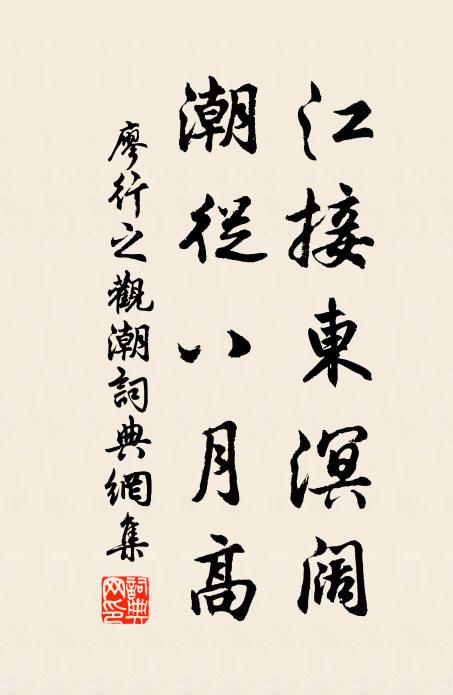 江接東溟闊
潮從八月高
廖行之觀潮詞典網集
詞典網印